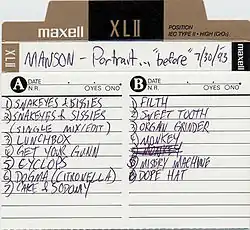 maxell XLII POSITION
IEC TYPE II • HIGH (CrO2)
XLII MANSON - Portrait... "before" 7/30/93 maxell
A DATE
N.R. YES NO
B DATE
N.R. YES NO
1) SNAKEYES & SISSIES
2) SNAKEYES & SISSIES
(SINGLE MIX/EDIT)
3) LUNCHBOX
4) GET YOUR GUNN
5) CYCLOPS
6) DOGMA (CITRONELLA)
7) CAKE & SODOMY
1) FILTH
2) SWEET TOOTH
3) ORGAN GRINDER
4) MONKEY
5) MISERY MACHINE
6) DOPE HAT